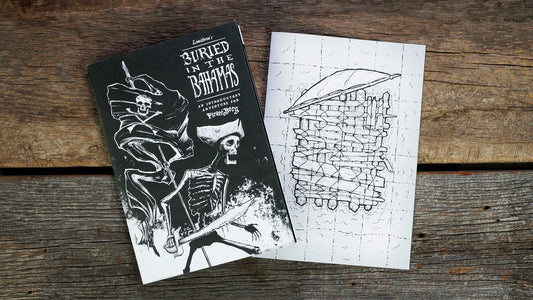 Limithron's
BURIED
IN THE
BAHAMAS
AN INTRODUCTORY
ADVENTURE FOR
Pirate Borg